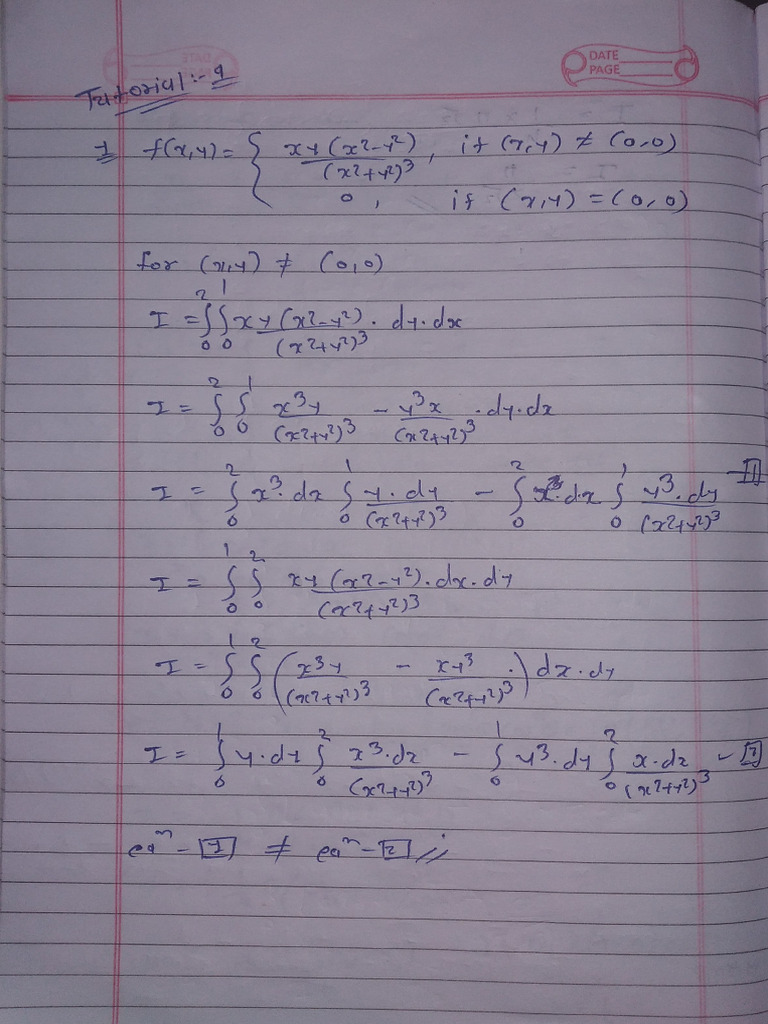 DATE
PAGE
Tutorial :- 9
1 f(x,y) = { xy(x²-y²)/(x²+y²)³, if (x,y) ≠ (0,0)
0, if (x,y) = (0,0)
for (x,y) ≠ (0,0)
I = ∫₀² ∫₀¹ xy(x²-y²)/(x²+y²)³ · dy·dx
I = ∫₀² ∫₀¹ x³y/(x²+y²)³ - y³x/(x²+y²)³ · dy·dx
I = ∫₀² x³·dx ∫₀¹ y·dy/(x²+y²)³ - ∫₀² x·dx ∫₀¹ y³·dy/(x²+y²)³ -[1]
I = ∫₀¹ ∫₀² xy(x²-y²)·dx·dy/(x²+y²)³
I = ∫₀¹ ∫₀² (x³y/(x²+y²)³ - xy³/(x²+y²)³) dx·dy
I = ∫₀¹ y·dy ∫₀² x³·dx/(x²+y²)³ - ∫₀¹ y³·dy ∫₀² x·dx/(x²+y²)³ -[2]
eqⁿ - [1] ≠ eqⁿ - [2] //